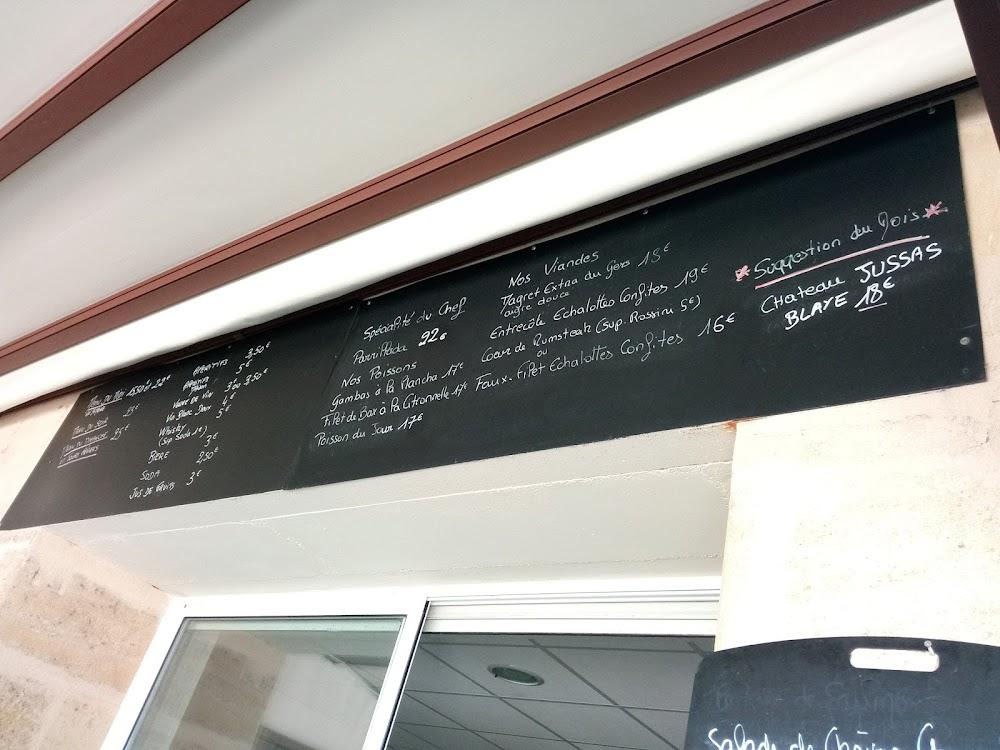 Menu du Midi 15,50 et 22€
Menu du Soir 25€
Menu du Dimanche
et Jours Fériés 25€
Apéritifs 3,50€
5€
Verre de Vin 3,00 3,50€
Vin Blanc Doux 4€
Whisky 5€
(Sup Soda 1€)
Bière 3€
Soda 2,50€
Jus de Fruits 3€
Spécialité du Chef
Parrillada 22€
Nos Poissons
Gambas à la Plancha 17€
Filet de Bar à la Citronnelle 17€
Poisson du Jour 17€
Nos Viandes
Magret Extra du Gers 18€
aigre douce
Entrecôte Echalottes Confites 19€
Coeur de Rumsteak (Sup. Rossini 5€)
ou
Faux-Filet Echalottes Confites 16€
Suggestion du Mois
Chateau JUSSAS
BLAYE 18€
Salade de Chèvre